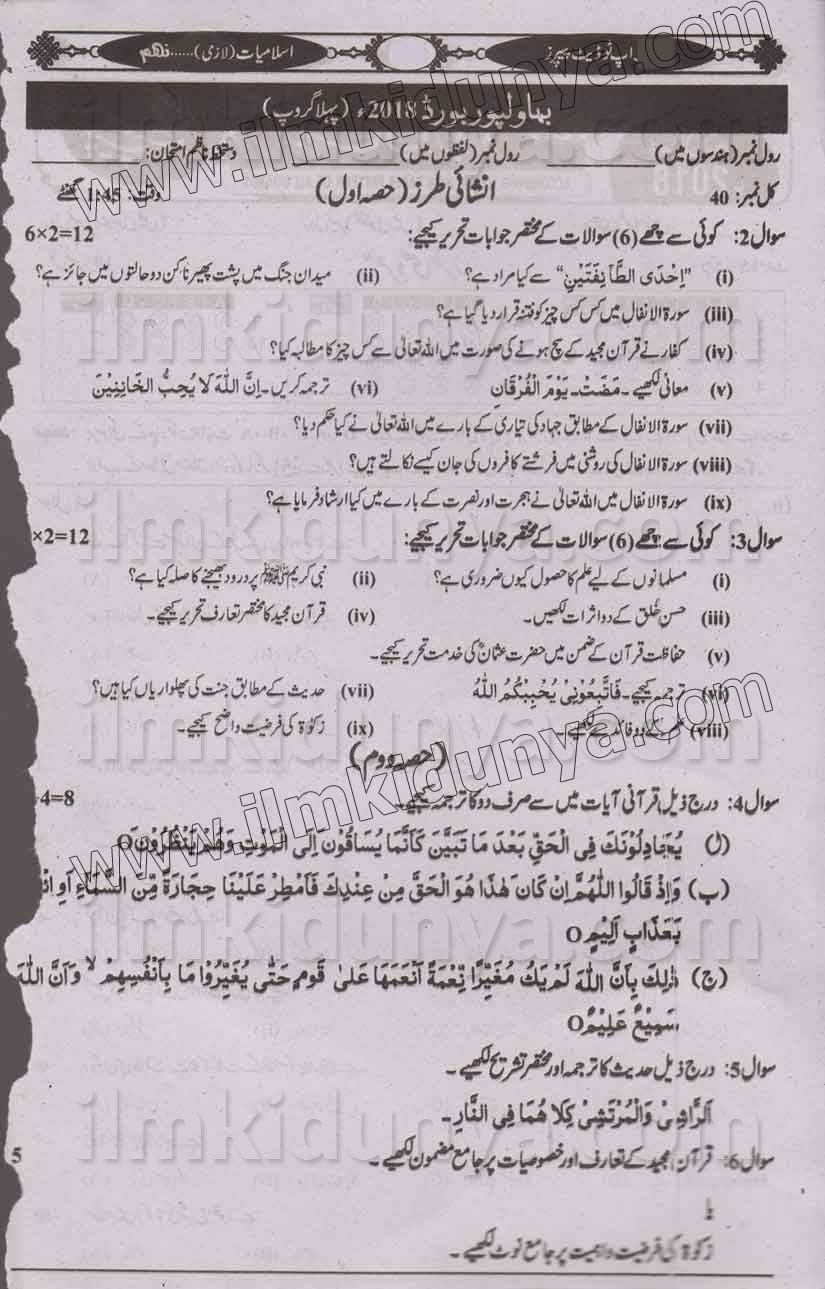 اپ ٹو ڈیٹ پیپرز اسلامیات (لازمی)......نہم
بہاولپور بورڈ 2018ء (پہلا گروپ)
رول نمبر (ہندسوں میں) رول نمبر (لفظوں میں) دستخط ناظم امتحان:
کل نمبر: 40 انشائی طرز (حصہ اول) وقت: 1:45 گھنٹے
سوال 2: کوئی سے چھے (6) سوالات کے مختصر جوابات تحریر کیجیے: 6×2=12
(i) "اِحْدَی الطَّآئِفَتَیْنِ" سے کیا مراد ہے؟ (ii) میدان جنگ میں پشت پھیرنا کن دو حالتوں میں جائز ہے؟
(iii) سورۃ الانفال میں کس کس چیز کو فتنہ قرار دیا گیا ہے؟
(iv) کفار نے قرآن مجید کے سچ ہونے کی صورت میں اللہ تعالیٰ سے کس چیز کا مطالبہ کیا؟
(v) معانی لکھیے۔ مَضَتْ۔ یَوْمَ الْفُرْقَانِ (vi) ترجمہ کریں۔ اِنَّ اللّٰہَ لَا یُحِبُّ الْخَائِنِیْنَ
(vii) سورۃ الانفال کے مطابق جہاد کی تیاری کے بارے میں اللہ تعالیٰ نے کیا حکم دیا؟
(viii) سورۃ الانفال کی روشنی میں فرشتے کافروں کی جان کیسے نکالتے ہیں؟
(ix) سورۃ الانفال میں اللہ تعالیٰ نے ہجرت اور نصرت کے بارے میں کیا ارشاد فرمایا ہے؟
سوال 3: کوئی سے چھے (6) سوالات کے مختصر جوابات تحریر کیجیے: ×2=12
(i) مسلمانوں کے لیے علم کا حصول کیوں ضروری ہے؟ (ii) نبی کریم ﷺ پر درود بھیجنے کا صلہ کیا ہے؟
(iii) حسن خُلق کے دو اثرات لکھیں۔ (iv) قرآن مجید کا مختصر تعارف تحریر کیجیے۔
(v) حفاظت قرآن کے ضمن میں حضرت عثمانؓ کی خدمت تحریر کیجیے۔
(vi) ترجمہ کیجیے۔ فَاتَّبِعُوْنِیْ یُحْبِبْکُمُ اللّٰہُ (vii) حدیث کے مطابق جنت کی پھلواریاں کیا ہیں؟
(viii) علم کے دو فائدے لکھیے۔ (ix) زکوٰۃ کی فرضیت واضح کیجیے۔
(حصہ دوم)
سوال 4: درج ذیل قرآنی آیات میں سے صرف دو کا ترجمہ کیجیے۔ 4=8
(ا) یُجَادِلُوْنَكَ فِی الْحَقِّ بَعْدَ مَا تَبَیَّنَ کَاَنَّمَا یُسَاقُوْنَ اِلَی الْمَوْتِ وَھُمْ یَنْظُرُوْنَO
(ب) وَاِذْ قَالُوا اللّٰھُمَّ اِنْ کَانَ ھٰذَا ھُوَ الْحَقَّ مِنْ عِنْدِكَ فَاَمْطِرْ عَلَیْنَا حِجَارَۃً مِّنَ السَّمَآءِ اَوِ ائْ
بِعَذَابٍ اَلِیْمٍO
(ج) ذٰلِكَ بِاَنَّ اللّٰہَ لَمْ یَكُ مُغَیِّرًا نِّعْمَۃً اَنْعَمَھَا عَلٰی قَوْمٍ حَتّٰی یُغَیِّرُوْا مَا بِاَنْفُسِھِمْ ۙ وَاَنَّ اللّٰہَ
سَمِیْعٌ عَلِیْمٌO
سوال 5: درج ذیل حدیث کا ترجمہ اور مختصر تشریح لکھیے۔
اَلرَّاشِیْ وَالْمُرْتَشِیْ کِلَا ھُمَا فِی النَّارِ۔
سوال 6: قرآن مجید کے تعارف اور خصوصیات پر جامع مضمون لکھیے۔ 5
یا
زکوٰۃ کی فرضیت و اہمیت پر جامع نوٹ لکھیے۔
www.ilmkidunya.com
www.ilmkidunya.com
ilmkidunya.com
ilmkidunya.com
ilmkidunya.com
ilmkidunya.com
ilmkidunya.com